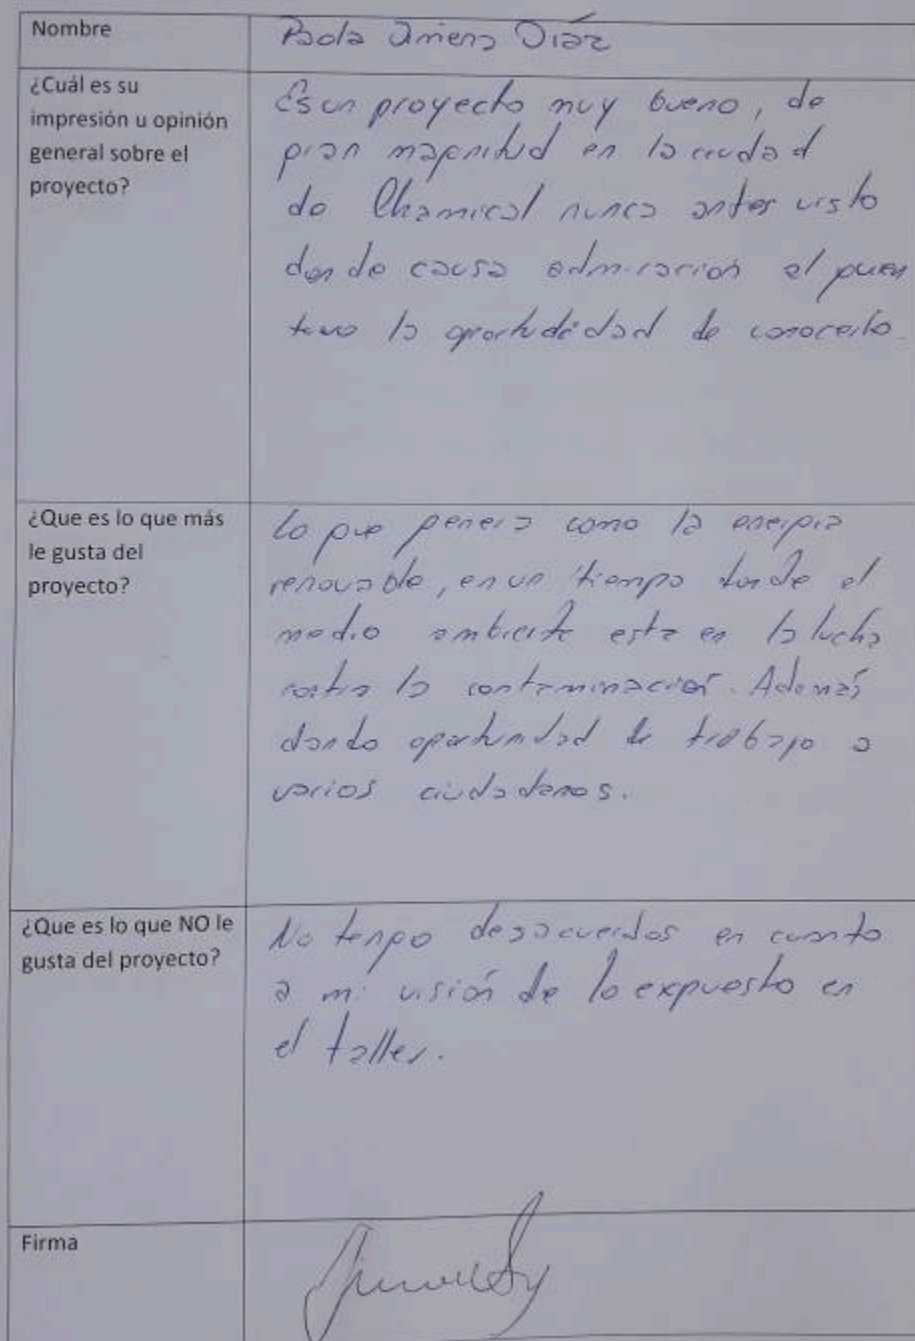 Nombre
Paola Jimena Díaz
¿Cuál es su
impresión u opinión
general sobre el
proyecto?
Es un proyecto muy bueno, de
gran magnitud en la ciudad
de Chamical nunca antes visto
donde causa admiración al quien
tuvo la oportudidad de conocerlo.
¿Que es lo que más
le gusta del
proyecto?
Lo que genera como la energia
renovable, en un tiempo donde el
medio ambiente esta en la lucha
contra la contaminación. Además
dando oportunidad de trabajo a
varios ciudadanos.
¿Que es lo que NO le
gusta del proyecto?
No tengo desacuerdos en cuanto
a mi visión de lo expuesto en
el taller.
Firma